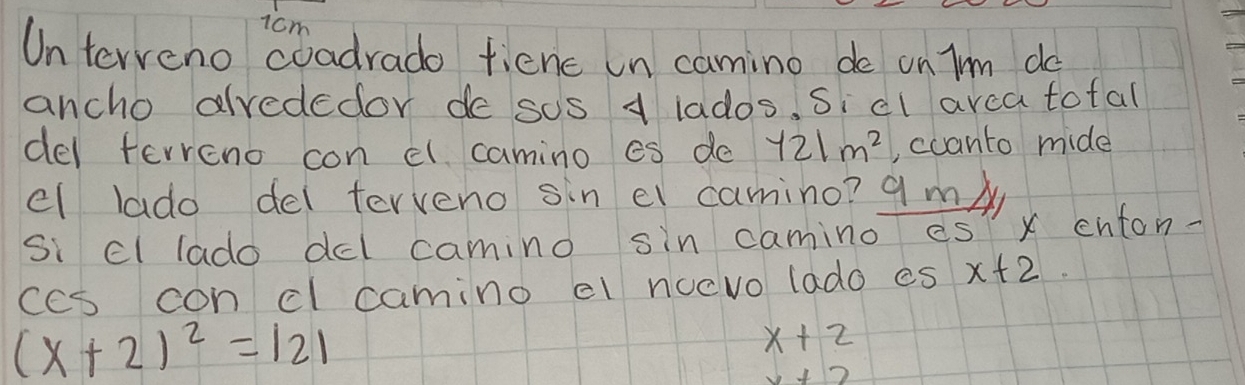 1cm
Un terreno cuadrado tiene un camino de un 1m de
ancho alrededor de sus 4 lados. Si el area total
del terreno con el camino es de 121m², cuanto mide
el lado del terreno sin el camino? 9 m
si el lado del camino sin camino es x enton-
ces con el camino el nuevo lado es x+2.
(x+2)² = 121 x+2